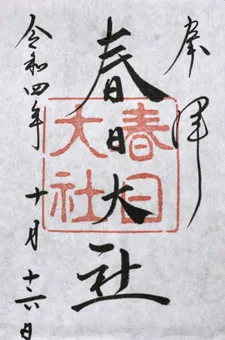 奉拝
春日大社
春日大社
令和四年 十月 十六日